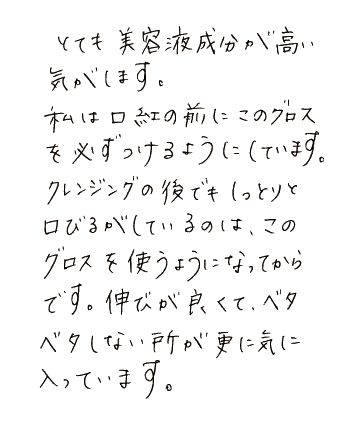 とても美容液成分が高い
気がします。
私は口紅の前にこのグロス
を必ずつけるようにしています。
クレンジングの後でもしっとりと
口びるがしているのは、この
グロスを使うようになってから
です。伸びが良くて、ベタ
ベタしない所が更に気に
入っています。